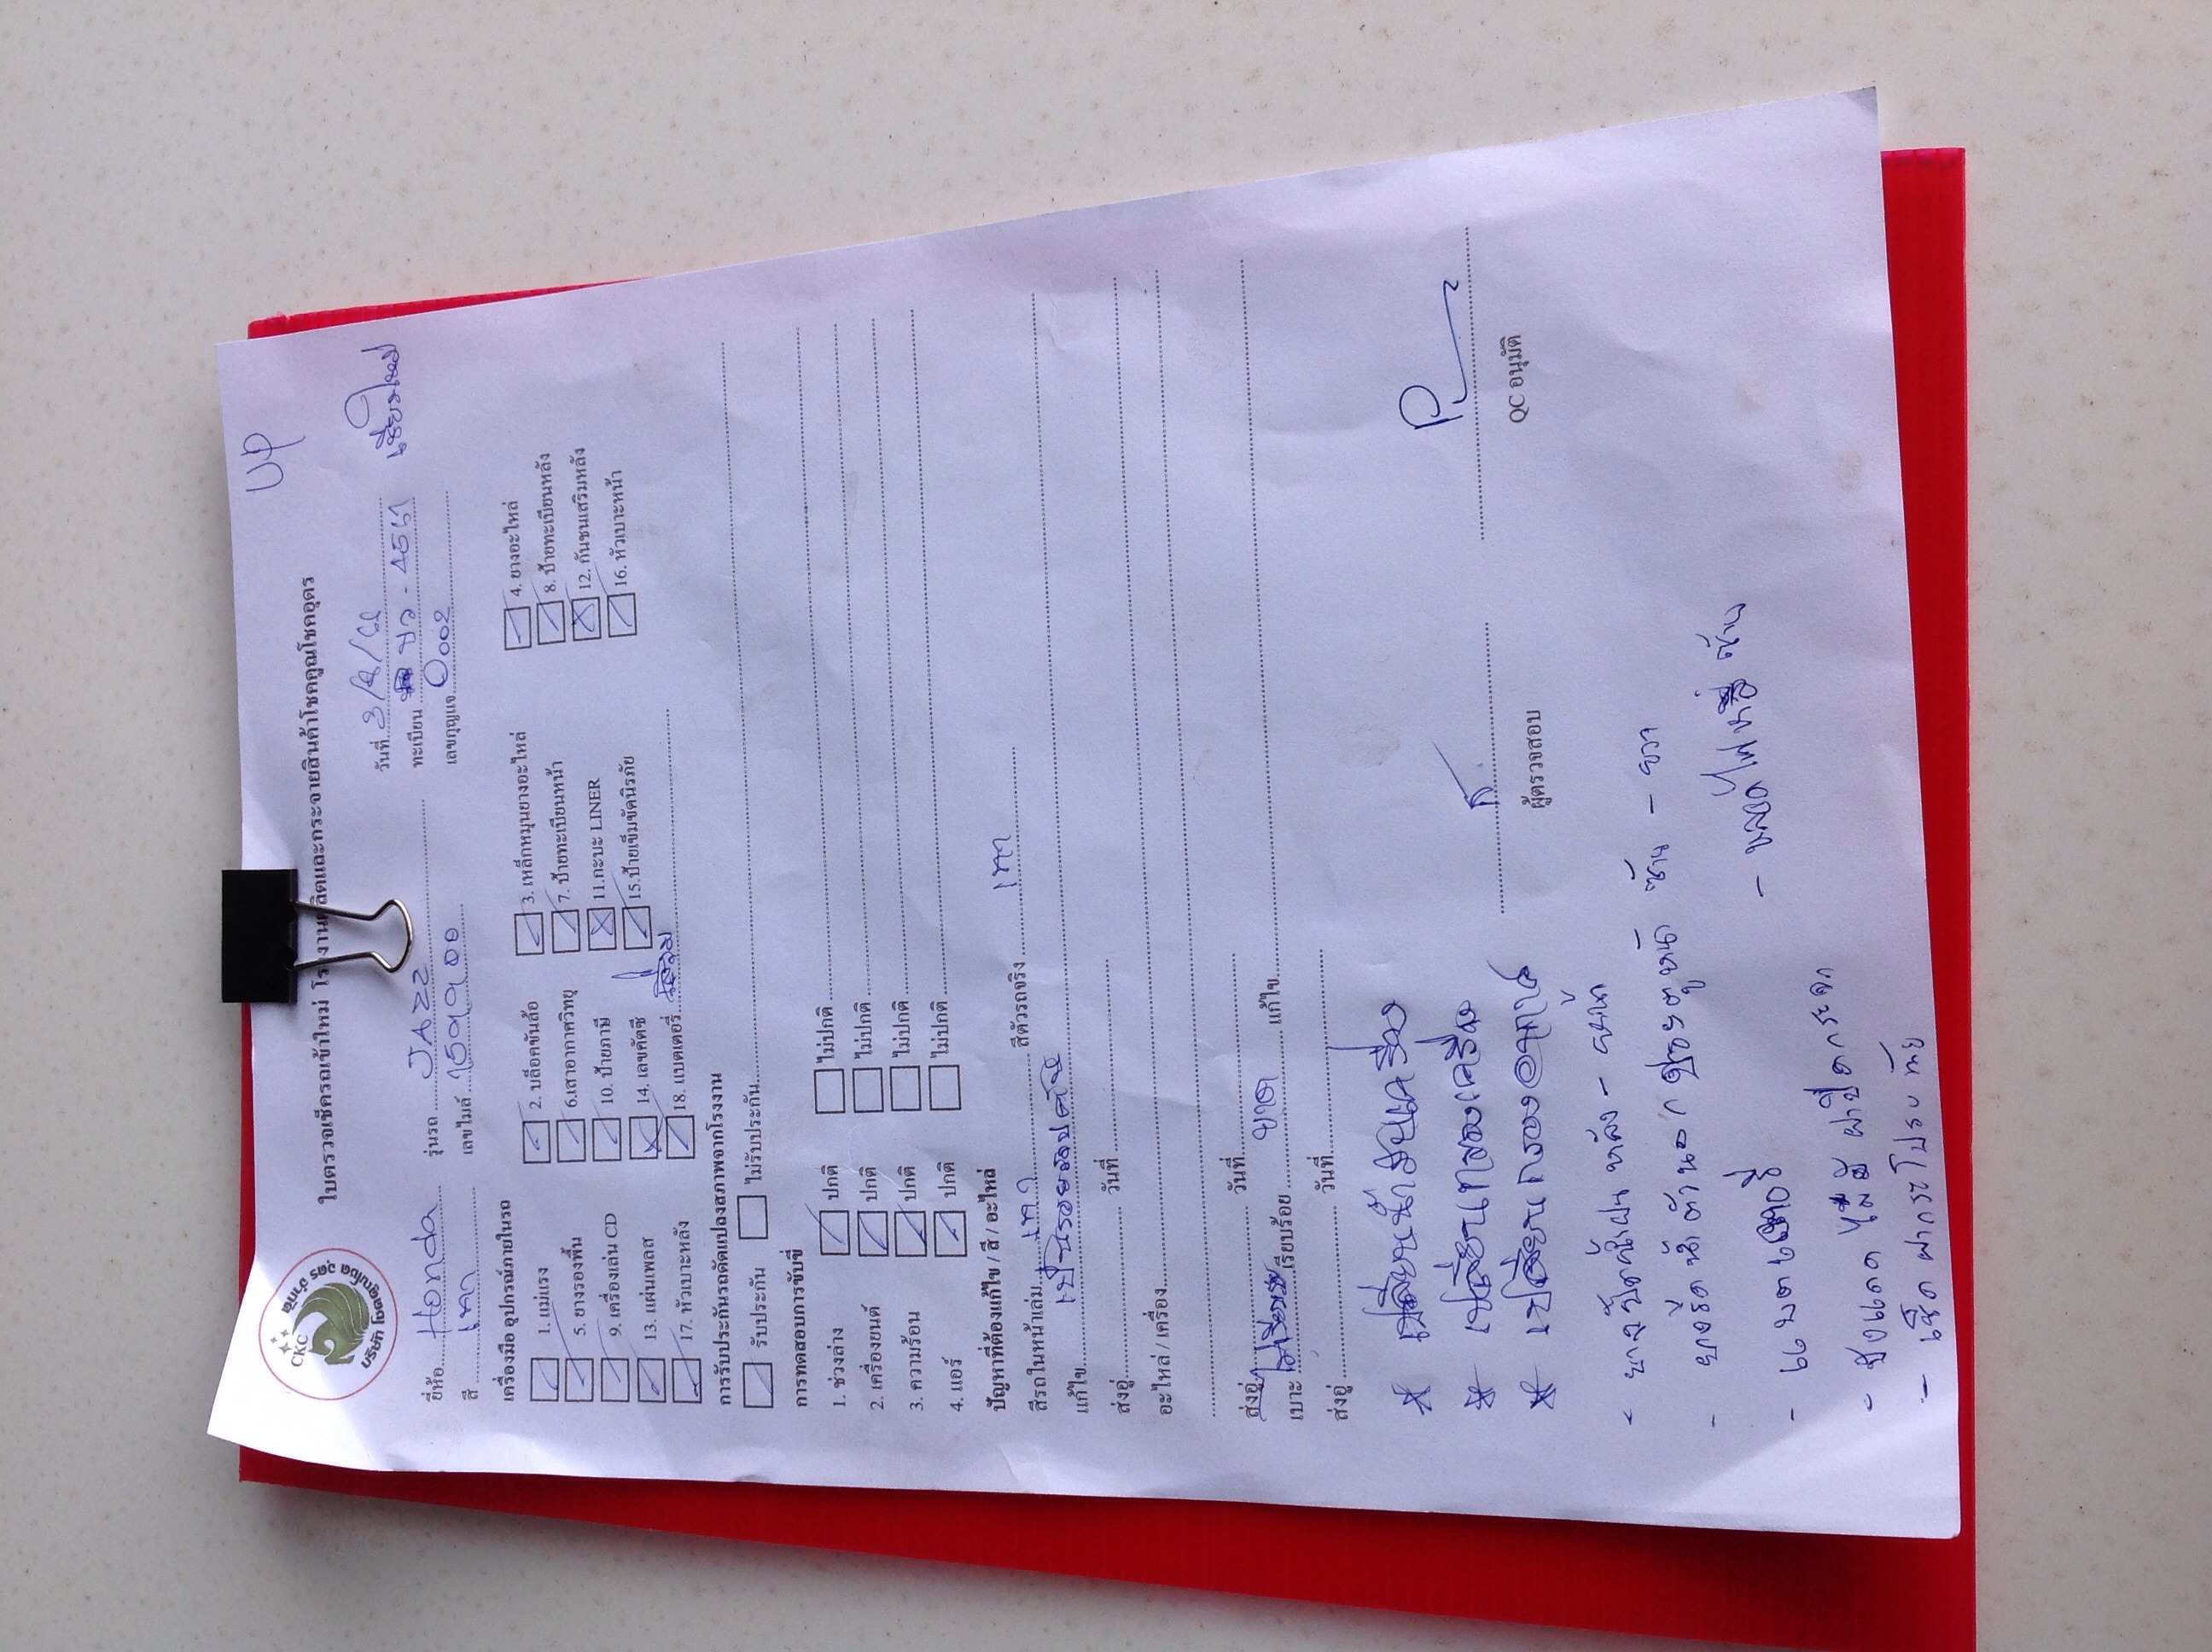 UP
CKC
บริษัท โชคคูณโชค อุดร จำกัด
ใบตรวจเช็ครถเข้าใหม่ โรงงานผลิตและกระจายสินค้าโชคคูณโชคอุดร
วันที่ 3/
ยี่ห้อ Honda รุ่นรถ JAZZ ทะเบียน ขว - 4561 เชียงใหม่
สี เทา เลขไมล์ 159900 เลขกุญแจ 0002
เครื่องมือ อุปกรณ์ภายในรถ
1. แม่แรง 2. บล็อกขันล้อ 3. เหล็กหมุนยางอะไหล่ 4. ยางอะไหล่
5. ยางรองพื้น 6.เสาอากาศวิทยุ 7. ป้ายทะเบียนหน้า 8. ป้ายทะเบียนหลัง
9. เครื่องเล่น CD 10. ป้ายภาษี 11.กะบะ LINER 12. กันชนเสริมหลัง
13. แผ่นเพลส 14. เลขคัตซี 15.ป้ายเข็มขัดนิรภัย 16. หัวเบาะหน้า
17. หัวเบาะหลัง 18. แบตเตอรี่ เสื่อม
การรับประกันรถดัดแปลงสภาพจากโรงงาน
รับประกัน ไม่รับประกัน
การทดสอบการขับขี่
1. ช่วงล่าง ปกติ ไม่ปกติ
2. เครื่องยนต์ ปกติ ไม่ปกติ
3. ความร้อน ปกติ ไม่ปกติ
4. แอร์ ปกติ ไม่ปกติ
ปัญหาที่ต้องแก้ไข / สี / อะไหล่
สีรถในหน้าเล่ม เทา สีตัวรถจริง เทา
แก้ไข เป็นรอยรอบคัน
ส่งอู่ วันที่
อะไหล่ / เครื่อง
ส่งอู่ วันที่
เบาะ ไม่เรียบร้อย เรียบร้อย ขาด แก้ไข
ส่งอู่ วันที่
* เปลี่ยนน้ำมันเครื่อง
* เปลี่ยนกรองเครื่อง
* เปลี่ยนกรองอากาศ
ผู้ตรวจสอบ QC อนุมัติ
- ยางปัดน้ำฝน หลัง - หน้า
- ยางรีดน้ำด้านนอก ประตูหน้า ซ้าย - ขวา
- แบตเตอรี่ - หลอดไฟหรี่ ซ้าย
- บังแดด ไม่มี ฝาปิดกระจก
- เช็ค ฝากระโปรง ท้าย